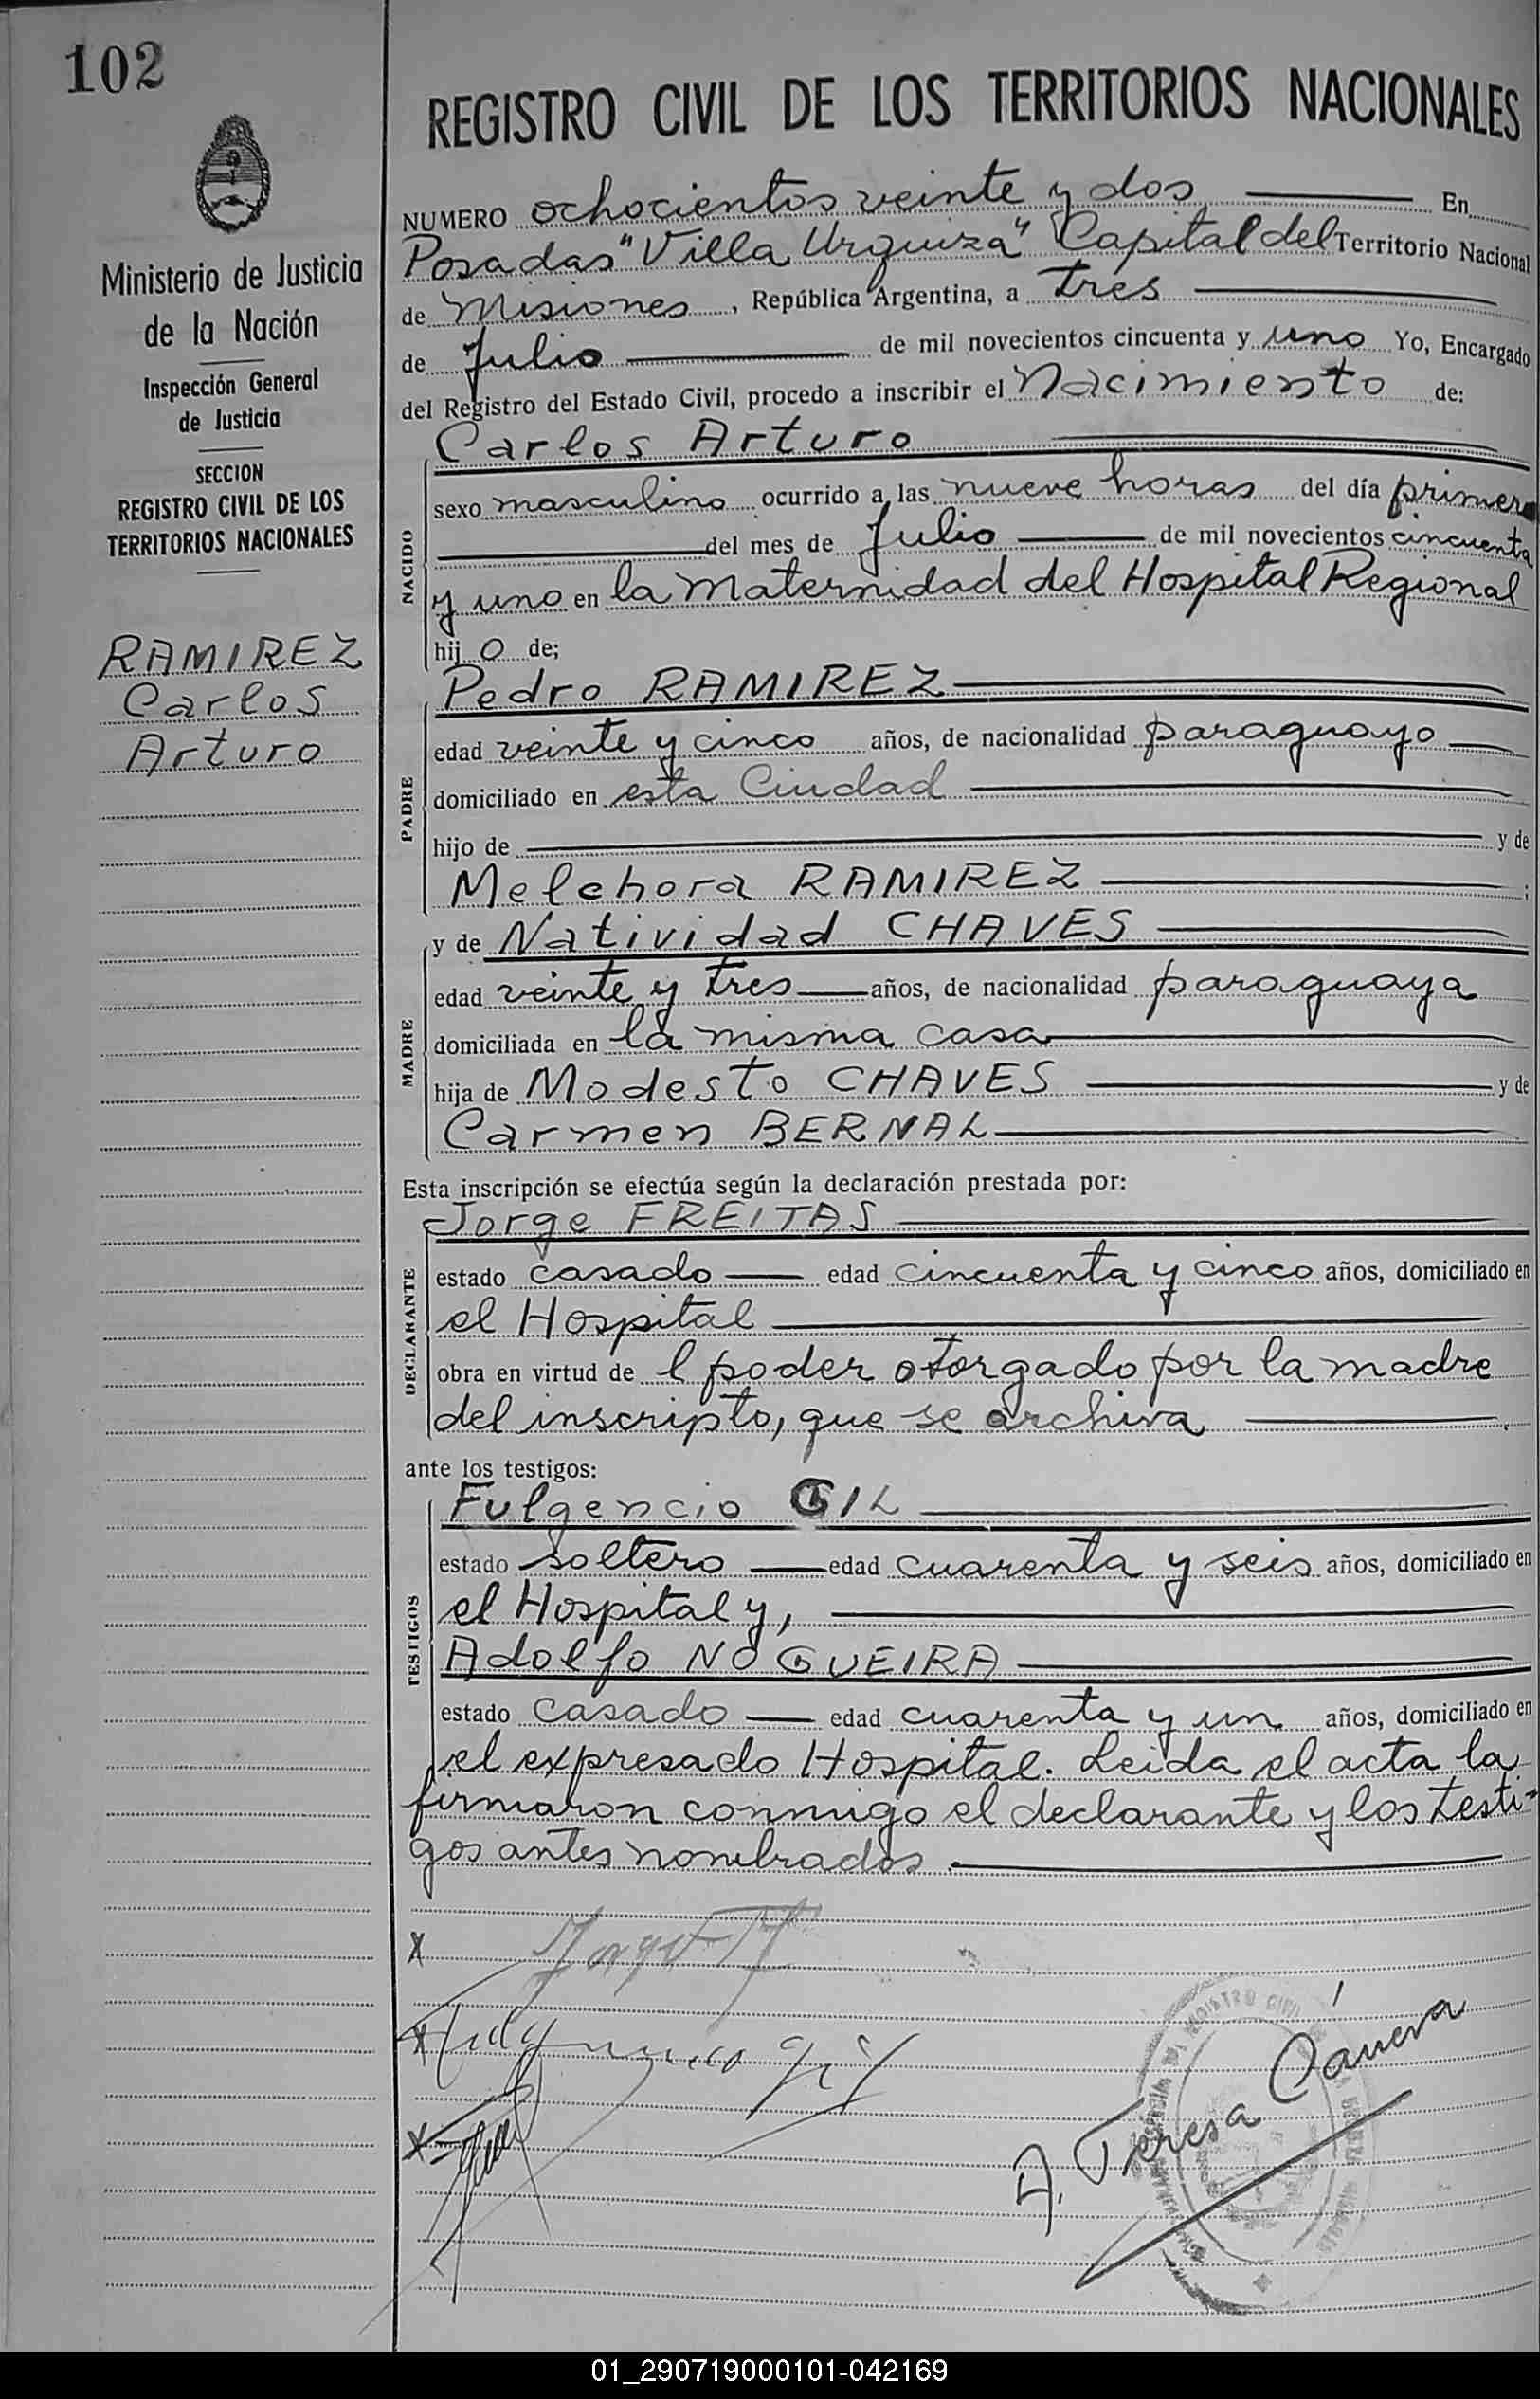 102
REGISTRO CIVIL DE LOS TERRITORIOS NACIONALES
Ministerio de Justicia
de la Nación
Inspección General
de Justicia
SECCION
REGISTRO CIVIL DE LOS
TERRITORIOS NACIONALES
RAMIREZ
Carlos
Arturo
NUMERO ochocientos veinte y dos En
Posadas "Villa Urquiza" Capital del Territorio Nacional
de Misiones, República Argentina, a tres
de Julio de mil novecientos cincuenta y uno Yo, Encargado
del Registro del Estado Civil, procedo a inscribir el Nacimiento de:
NACIDO
Carlos Arturo
sexo masculino ocurrido a las nueve horas del día primero
del mes de Julio de mil novecientos cincuenta
y uno en la Maternidad del Hospital Regional
hijo de;
PADRE
Pedro RAMIREZ
edad veinte y cinco años, de nacionalidad paraguayo
domiciliado en esta Ciudad
hijo de y de
Melchora RAMIREZ ;
MADRE
y de Natividad CHAVES
edad veinte y tres años, de nacionalidad paraguaya
domiciliada en la misma casa
hija de Modesto CHAVES y de
Carmen BERNAL
Esta inscripción se efectúa según la declaración prestada por:
DECLARANTE
Jorge FREITAS
estado casado edad cincuenta y cinco años, domiciliado en
el Hospital
obra en virtud de l poder otorgado por la madre
del inscripto, que se archiva .
ante los testigos:
TESTIGOS
Fulgencio GIL
estado soltero edad cuarenta y seis años, domiciliado en
el Hospital y,
Adolfo NOGUEIRA
estado casado edad cuarenta y un años, domiciliado en
el expresado Hospital. Leida el acta la
firmaron conmigo el declarante y los testi-
gos antes nombrados.
x
x Fulgencio Gil
x
A. Teresa Cánova
01_290719000101-042169